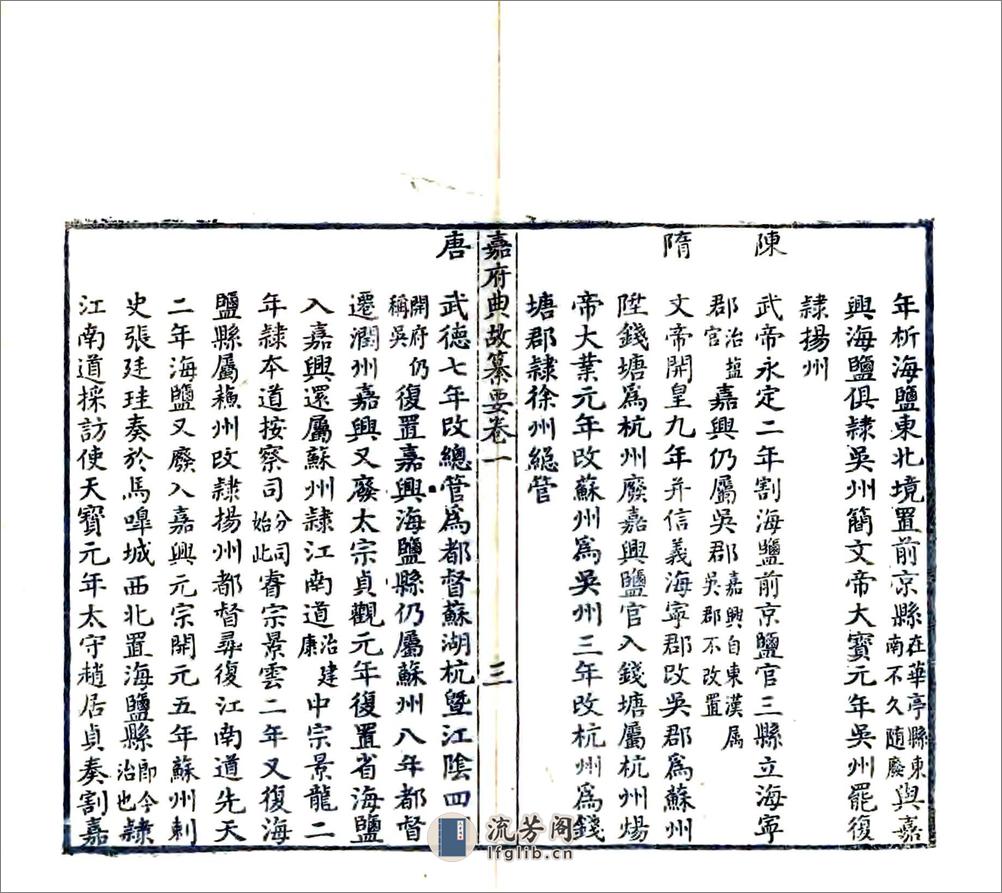 年析海鹽東北境置前京縣在華亭縣東南不久隨廢與嘉
興海鹽俱隸吳州簡文帝大寶元年吳州罷復
隸揚州
陳
武帝永定二年割海鹽前京鹽官三縣立海寧
郡治鹽官嘉興仍屬吳郡嘉興自東漢屬吳郡不改置
隋
文帝開皇九年并信義海寧郡改吳郡為蘇州
陞錢塘爲杭州廢嘉興鹽官入錢塘屬杭州煬
帝大業元年改蘇州爲吳州三年改杭州爲錢
塘郡隸徐州總管
嘉府典故纂要卷一
三
唐
武德七年改總管爲都督蘇湖杭暨江陰四
開府仍稱吳復置嘉興海鹽縣仍屬蘇州八年都督
遷潤州嘉興又廢太宗貞觀元年復置省海鹽
入嘉興還屬蘇州隸江南道治建康中宗景龍二
年隸本道按察司分司始此睿宗景雲二年又復海
鹽縣屬蘇州改隸揚州都督尋復江南道先天
二年海鹽又廢入嘉興元宗開元五年蘇州刺
史張廷珪奏於馬嘷城西北置海鹽縣即今治也隸
江南道採訪使天寶元年太守趙居貞奏割嘉
流芳阁
lfglib.cn